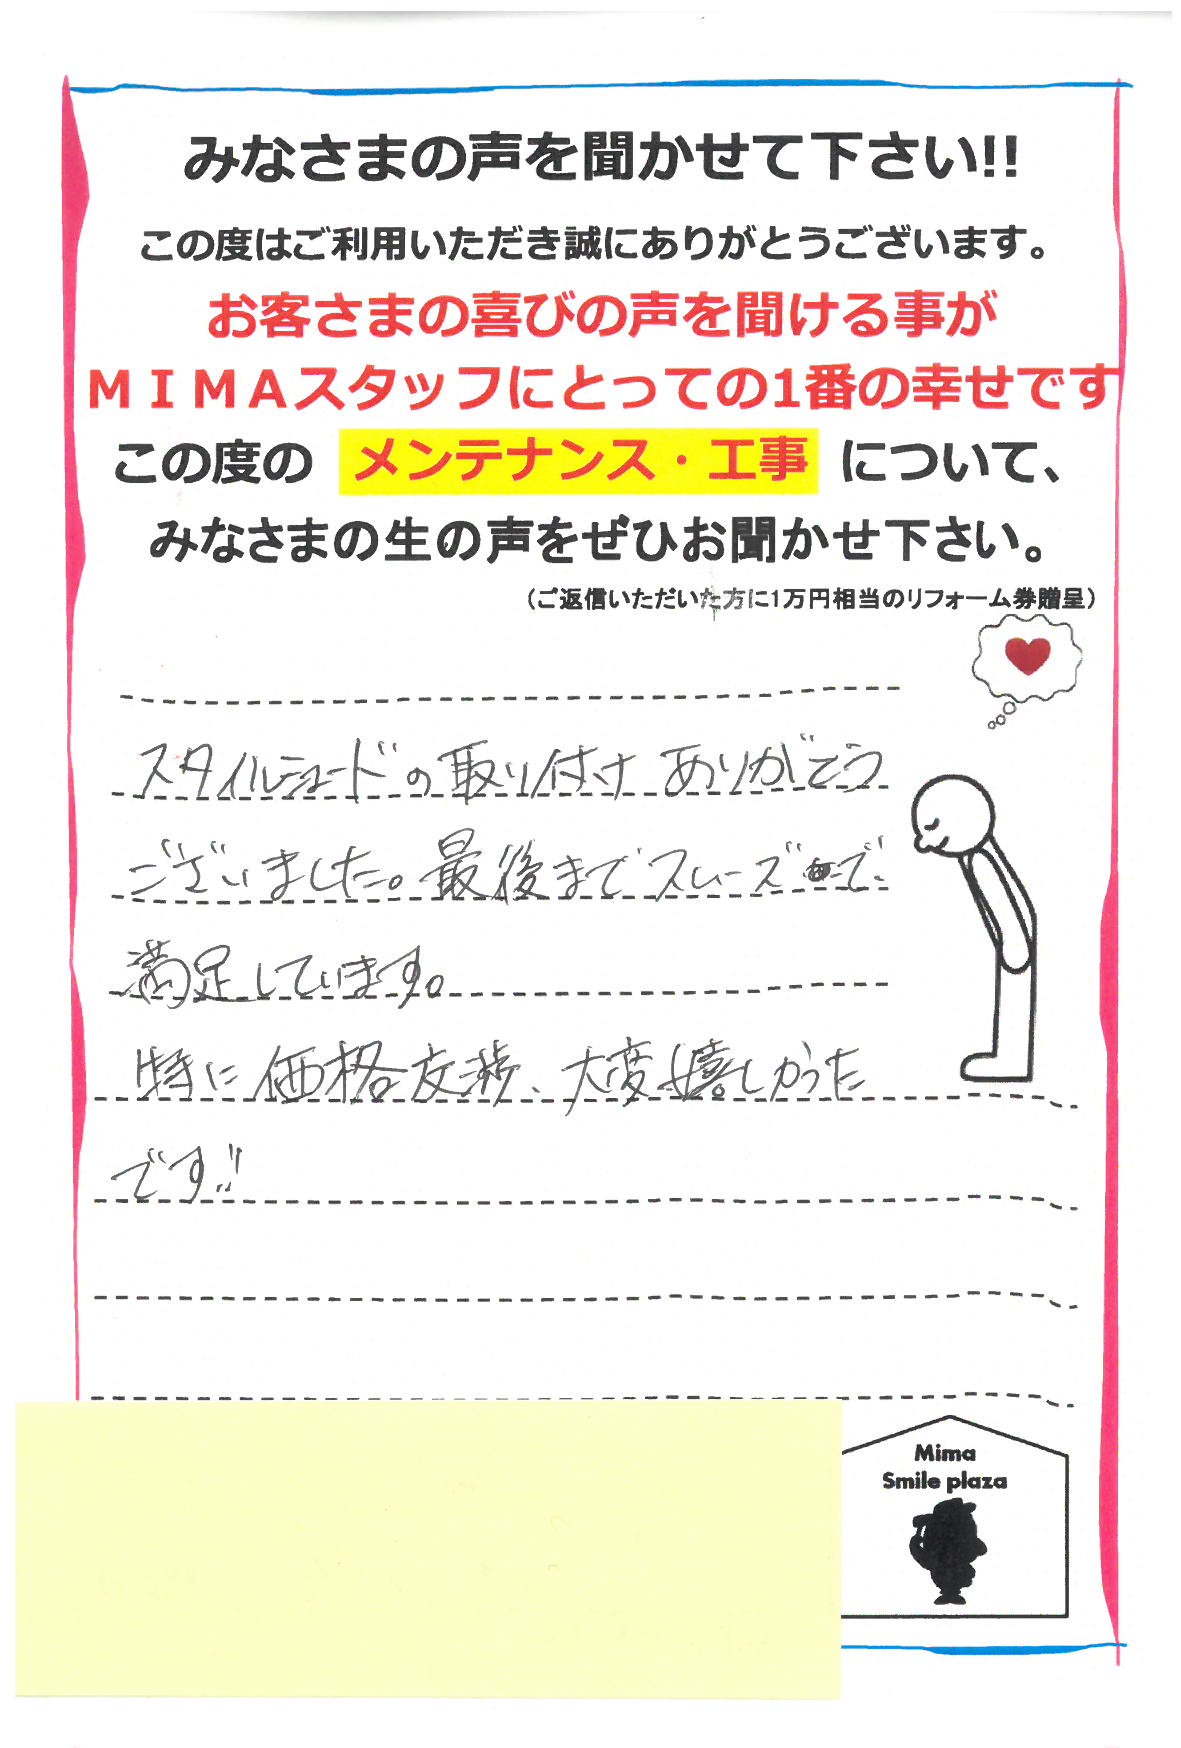 みなさまの声を聞かせて下さい!!
この度はご利用いただき誠にありがとうございます。
お客さまの喜びの声を聞ける事が
ＭＩＭＡスタッフにとっての1番の幸せです
この度の メンテナンス・工事 について、
みなさまの生の声をぜひお聞かせ下さい。
（ご返信いただいた方に1万円相当のリフォーム券贈呈）
スタイルシェードの取り付け ありがとう
ございました。最後までスムーズで
満足しています。
特に価格交渉、大変嬉しかった
です!!
Mima
Smile plaza